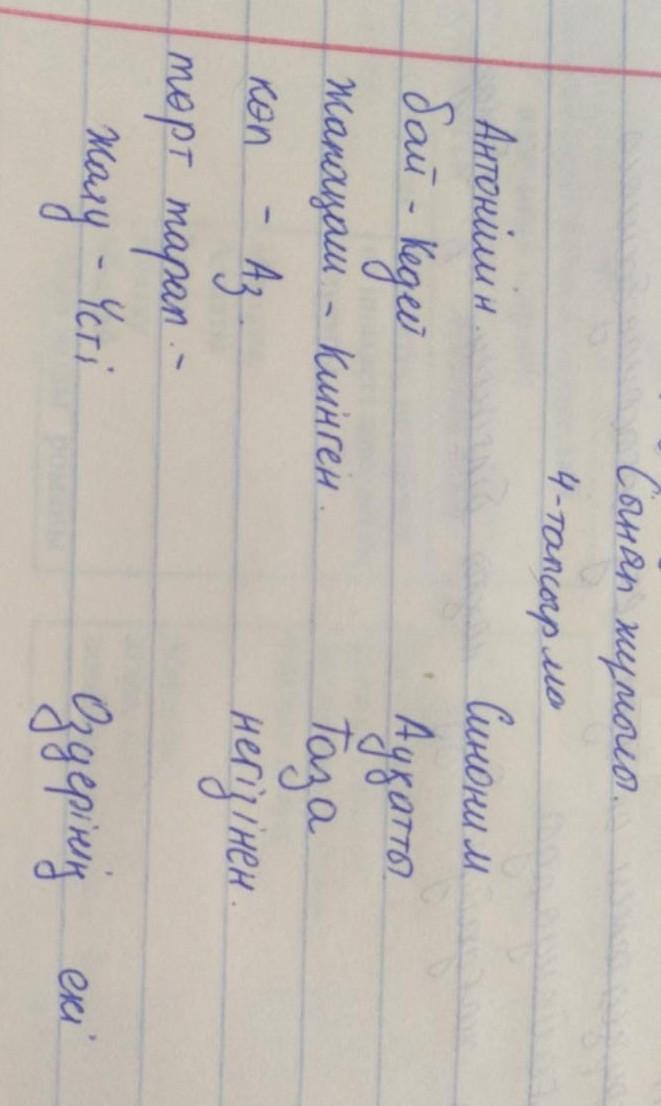 Сынап жумоло.
4-тапсырмо
Антонiмiн. Синоним
бай - Кедей Ауқатты
Жапацаш - Киiнген. Таза
көп - Аз. негiзiнен.
төрт тарап. -
жалу - Үстi Өздерiнiң екi